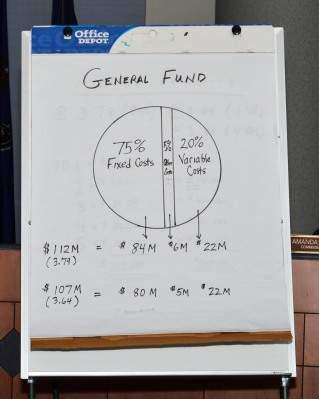 Office
DEPOT
GENERAL FUND
75%
Fixed Costs
5%
20%
Variable
Costs
$112M = $84M $6M $22M
(3.79)
$107M = $80M $5M $22M
(3.64)
AMANDA